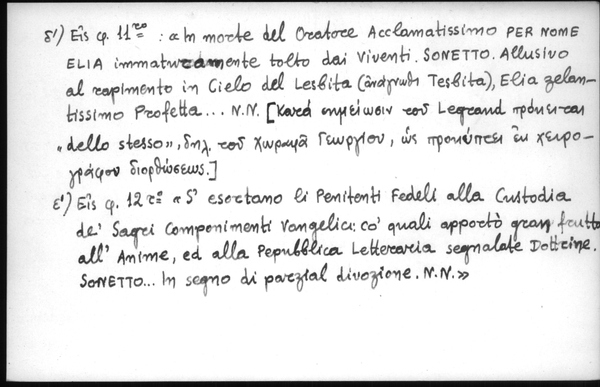 δ') Εἰς φ. 11ro : «In morte del Oratore Acclamatissimo PER NOME
ELIA immaturamente tolto dai Viventi. SONETTO. Allusivo
al rapimento in Cielo del Lesbita (ἀνάγνωθι Tesbita), Elia zelan-
tissimo Profetta... N.N. [Κατά σημείωσιν τοῦ Legrand πρόκειται
«dello stesso», δηλ. τοῦ Χωραφᾶ Γεωργίου, ὡς προκύπτει ἐκ χειρο-
γράφου διορθώσεως.]
ε') Εἰς φ. 12ro «S' esortano li Penitenti Fedeli alla Custodia
de' Sagri Componimenti Vangelici: co' quali apportò gran frutto
all' Anime, ed alla Pepubblica Letteraria segnalate Dottrine.
SONETTO... In segno di parzial divozione. N.N.»